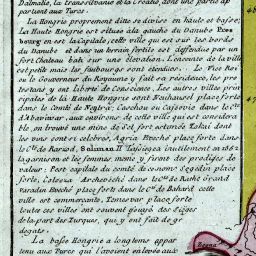 Dalmatie, la transsilvanie et la Croatie, dont une partie ap
partient aux Turcs.
La Hongrie proprement dite se divise en haute et basse,
La Haute Hongrie est située à la gauche du Danube Pres
bourg en est la Capitale, cette ville qui est sur les bords
du Danube et dans un terrain fertile est deffendue par un
fort Chateau bati sur une élevation. L'enceinte de la ville
est petite mais les fauxbourgs sont étendues. Le
le Gouverneur du Royaume y fait sa résidence, les pro
testans y ont liberté de Conscience. Les autres villes prin
cipales de la Haute Hongrie sont place forte
dans le Comté de Cassovie dans le
aux environs de cette ville qui est considera
ble, on trouve une mine de sel fort estimée, Tokai dont
les vins sont si célebres, Agria Evêché place forte dans
le Soliman II l'assiegea inutilement en 1552
la garnison et les femmes meme y firent des prodiges de
valeur: Pest capitale du comté de ce nom Segedin place
forte, Colocza Archevêché dans le Grand
Varadin Evêché place forte dans le Cté de cette
ville est commerçante, Temesvar place forte
toutes ces villes ont souvent essuyé des Sieges
de la part des Turques, qui y ont fait de gr
degats.
La basse Hongrie a longtems appar
tenu aux Turcs qui l'avoient enlevée aux